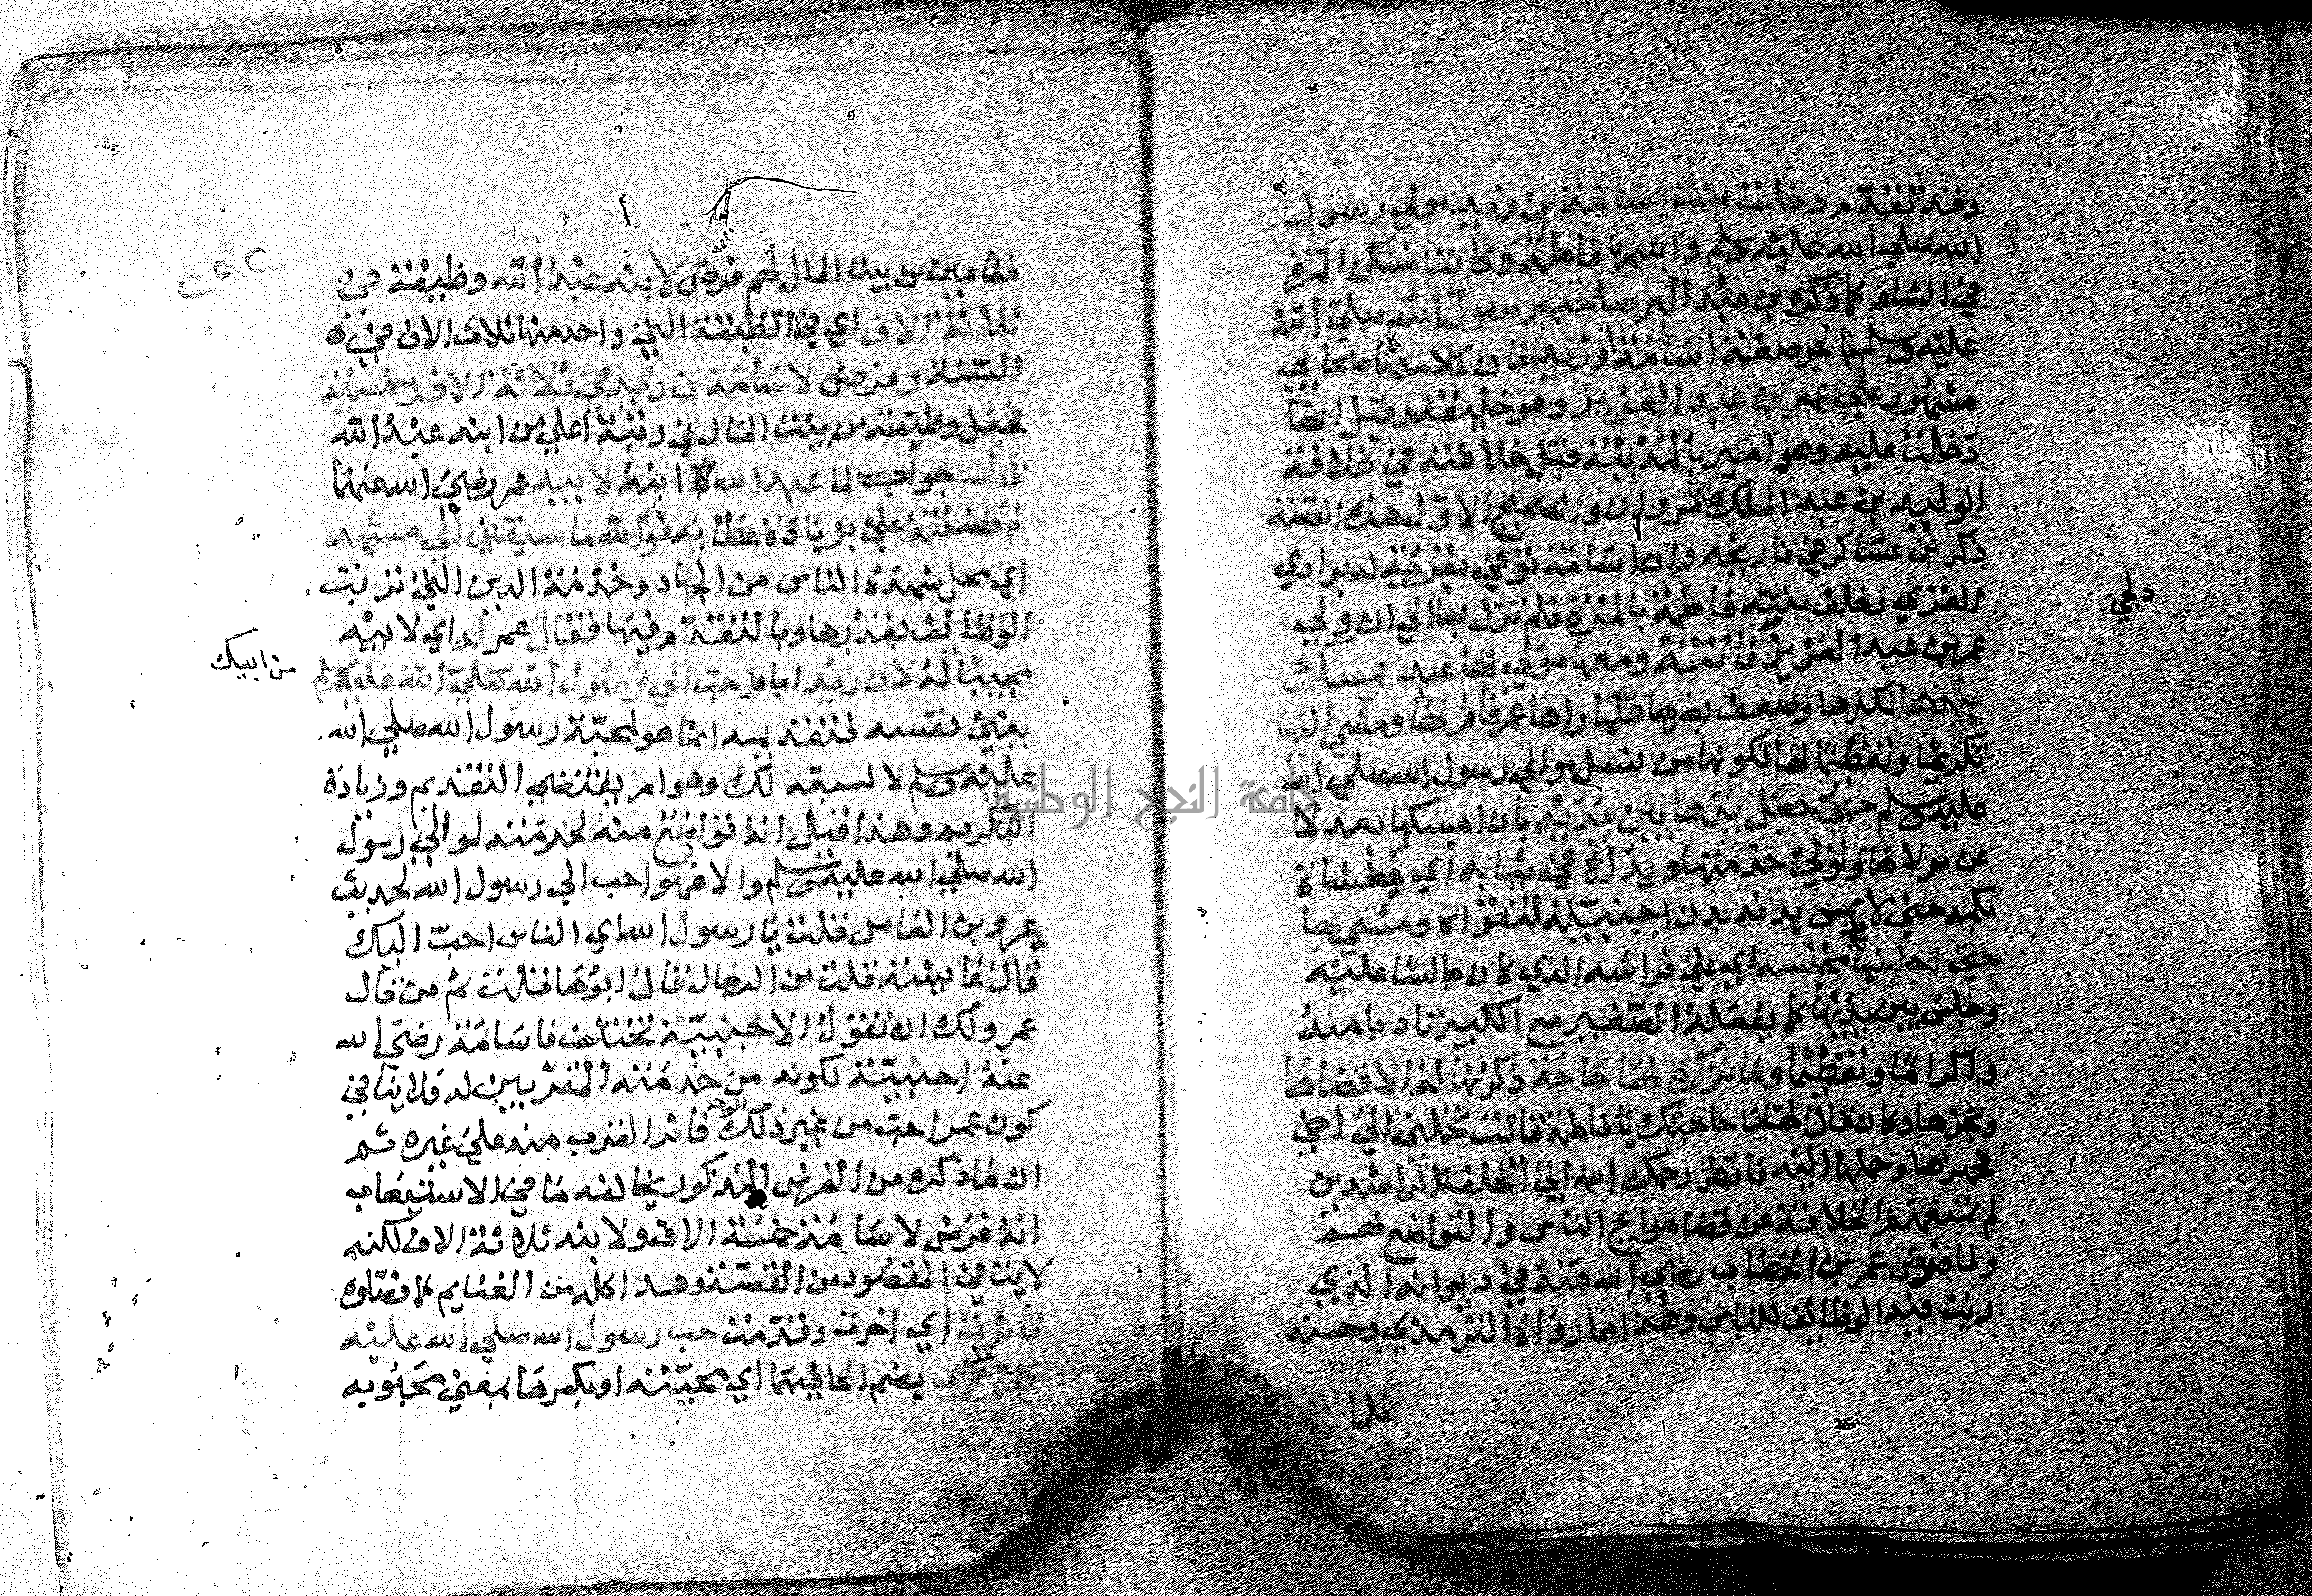 وقد تقدم دخلت بنت اسامة بن زيد مولي رسول
الله صلي الله عليه وسلم واسمها فاطمة وكانت تسكن المزة
في الشام كما ذكره بن عبد البر صاحب رسول الله صلي الله
عليه وسلم بالجر صفة اسامة او زيد فان كلا منهما صحابي
مشهور علي عمر بن عبد العزيز وهو خليفة وقيل انها
دخلت عليه وهو امير بالمدينة قبل خلافته في خلافة
الوليد بن عبد الملك بن مروان والصحيح الاول هذه القصة
ذكر بن عساكر في تاريخه وان اسامة توفي بقرية له بوادي
القري وخلف بنته فاطمة بالمزة فلم تزل بها الي ان ولي
عمر بن عبد العزيز فاتته ومعها مولي لها عبد يمسك
بيدها لكبرها وضعف بصرها فلما راها عمر قام لها ومشي اليها
تكريما وتعظيما لها لكونها من نسل موالي رسول الله صلي الله
عليه وسلم حتي جعل يدها بين يديه بان امسكها بعد
عن مولاها وتولي خدمتها ويداه في ثيابه اي مغشاة
بكمه حتي لا يمس يده بدن اجنبية لتقواه ومشي بها
حتي اجلسها مجلسه اي علي فراشه الذي كان جالسا عليه
وجلس بين يديها كما يفعله الصغير مع الكبير تادبا منه
واكراما وتعظيما وما ترك لها حاجة ذكرتها له الا قضاها
ونجزها وكان قال لها ما حاجتك يا فاطمة قالت تحملني الي اخي
فجهزها وحملها اليه فانظر رحمك الله الي الخلفا الراشدين
لم تمنعهم الخلافة عن قضا حوايج الناس والتواضع لهم
ولما فرض عمر بن الخطاب رضي الله عنه في ديوانه الذي
رتب فيه الوظائف للناس وهذا مما رواه الترمذي وحسنه
فلما
دلجي
٢٩٢
فلما عين من بيت المال لهم فرض لابنه عبد الله وظيفة في
ثلاثة الاف اي في الطبقة التي واحد منها ثلاث الاف في
السنة وفرض لاسامة بن زيد في ثلاثة الاف وخمسماية
فجعل وظيفته من بيت المال في رتبة اعلي من ابنه عبد الله
قال جواب لما عبد الله ابنه لابيه عمر رضي الله عنهما
لم فضلته علي بزيادة عطايه فوالله ما سبقني الي مشهد
اي محل شهده الناس من الجهاد وخدمة الدين التي ترتبت
الوظائف بقدرها وبالتقدم فيها فقال عمر له اي لابنه
مجيبا له لان زيدا اباه احب الي رسول الله صلي الله عليه وسلم
من ابيك
يعني نفسه فتقديمه انما هو لمحبة رسول الله صلي الله
عليه وسلم لا لسبقه لك وهو امر يقتضي التقديم وزيادة
التكريم وهذا قيل انه تواضع منه لخدمته لموالي رسول
الله صلي الله عليه وسلم والا فهو احب الي رسول الله لحديث
عمرو بن العاص قلت يا رسول الله اي الناس احب اليك
قال عايشة قلت من الرجال قال ابوها قلت ثم من قال
عمر ولك ان تقول الاحبية تختلف فاسامة رضي الله
عنه احبية لكونه من خدمته المقربين له فلا ينافي
كون عمر احب من غير ذلك الوجه فاثر القرب منه علي غيره ثم
ان ما ذكره من الفرض المذكور يخالفه ما في الاستيعاب
انه فرض لاسامة خمسة الاف ولابنه ثلاثة الاف لكنه
لا ينافي المقصود من القصة وهذا كله من الغنايم كما فصلوه
فاثرت اي اخرت وقدمت حب رسول الله صلي الله عليه
وسلم علي حبي بضم الحا فيهما اي محبته او بكسرها بمعني محبوبه